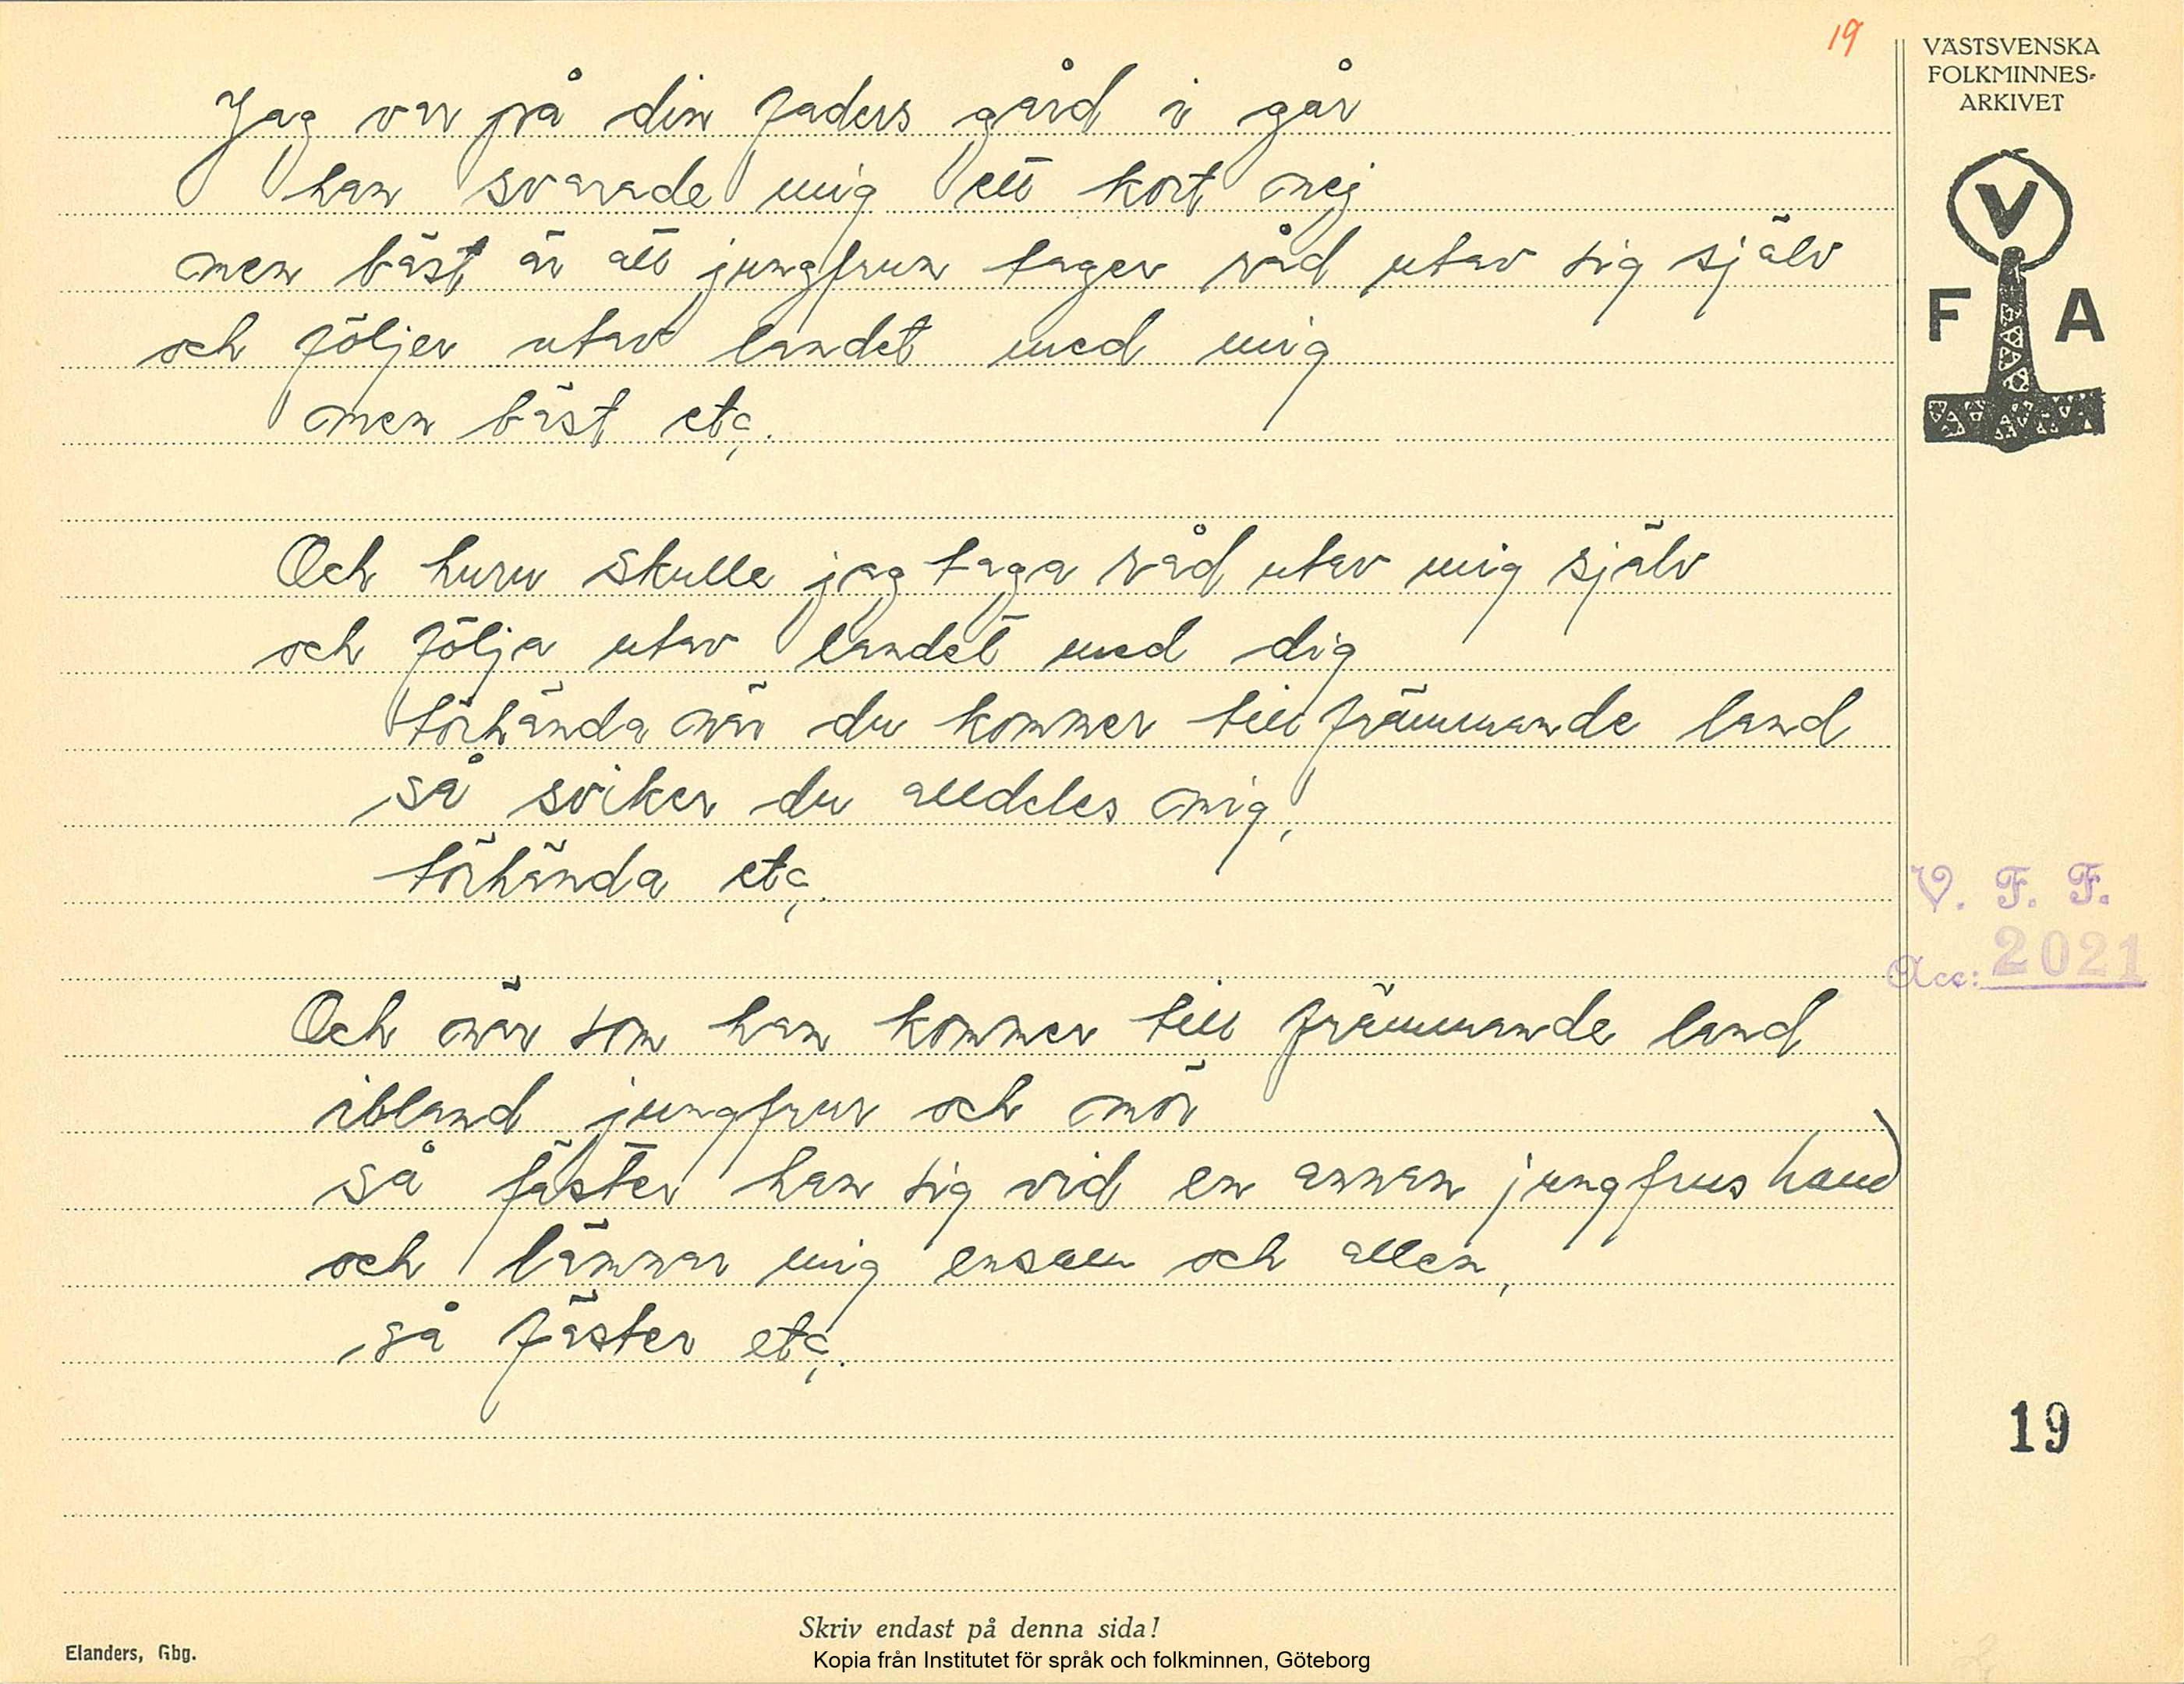 19
VÄSTSVENSKA
FOLKMINNES-
ARKIVET
V
F A
Jag var på din faders gård i går
han svarade mig ett kort nej
men bäst är att jungfrun tager råd utav sig själv
och följer utav landet med mig
men bäst etc.
Och huru skulle jag taga råd utav mig själv
och följa utav landet med dig
törhända när du kommer till främmande land
så sviker du alldeles mig,
törhända etc.
V. F. F.
Acc: 2021
Och när som han kommer till främmande land
ibland jungfrur och mör
så fäster han sig vid en annan jungfrus hand
och lämnar mig ensam och allen,
så fäster etc.
19
Skriv endast på denna sida!
Elanders, Gbg.
Kopia från Institutet för språk och folkminnen, Göteborg